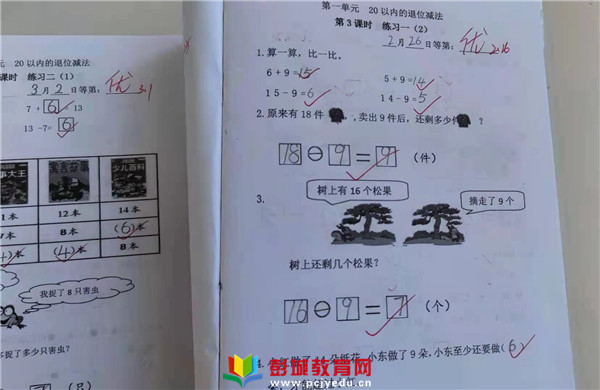 元 20以内的退位减法
课时 练习二(1)
3月2日等第: 优 3.1
7+6 13
13-7=6
事大王
少儿百科
1本 12本 14本
7本 8本 (6)本
4)本 (4)本 8本
我捉了8只害虫
捉了多少只害虫?
(只)
第一单元 20以内的退位减法
第3课时 练习一(2)
2月26日等第: 优
1.算一算,比一比。
6+9=15 5+9=14
15-9=6 14-9=5
2.原来有18件 ,卖出9件后,还剩多少件 ?
18⊖9=9 (件)
3.
树上有16个松果
摘走了9个
树上还剩几个松果?
16⊖9=7 (个)
朵纸花,小东做了9朵,小东至少还要做(6)
彭城教育网
www.pcjyedu.cn